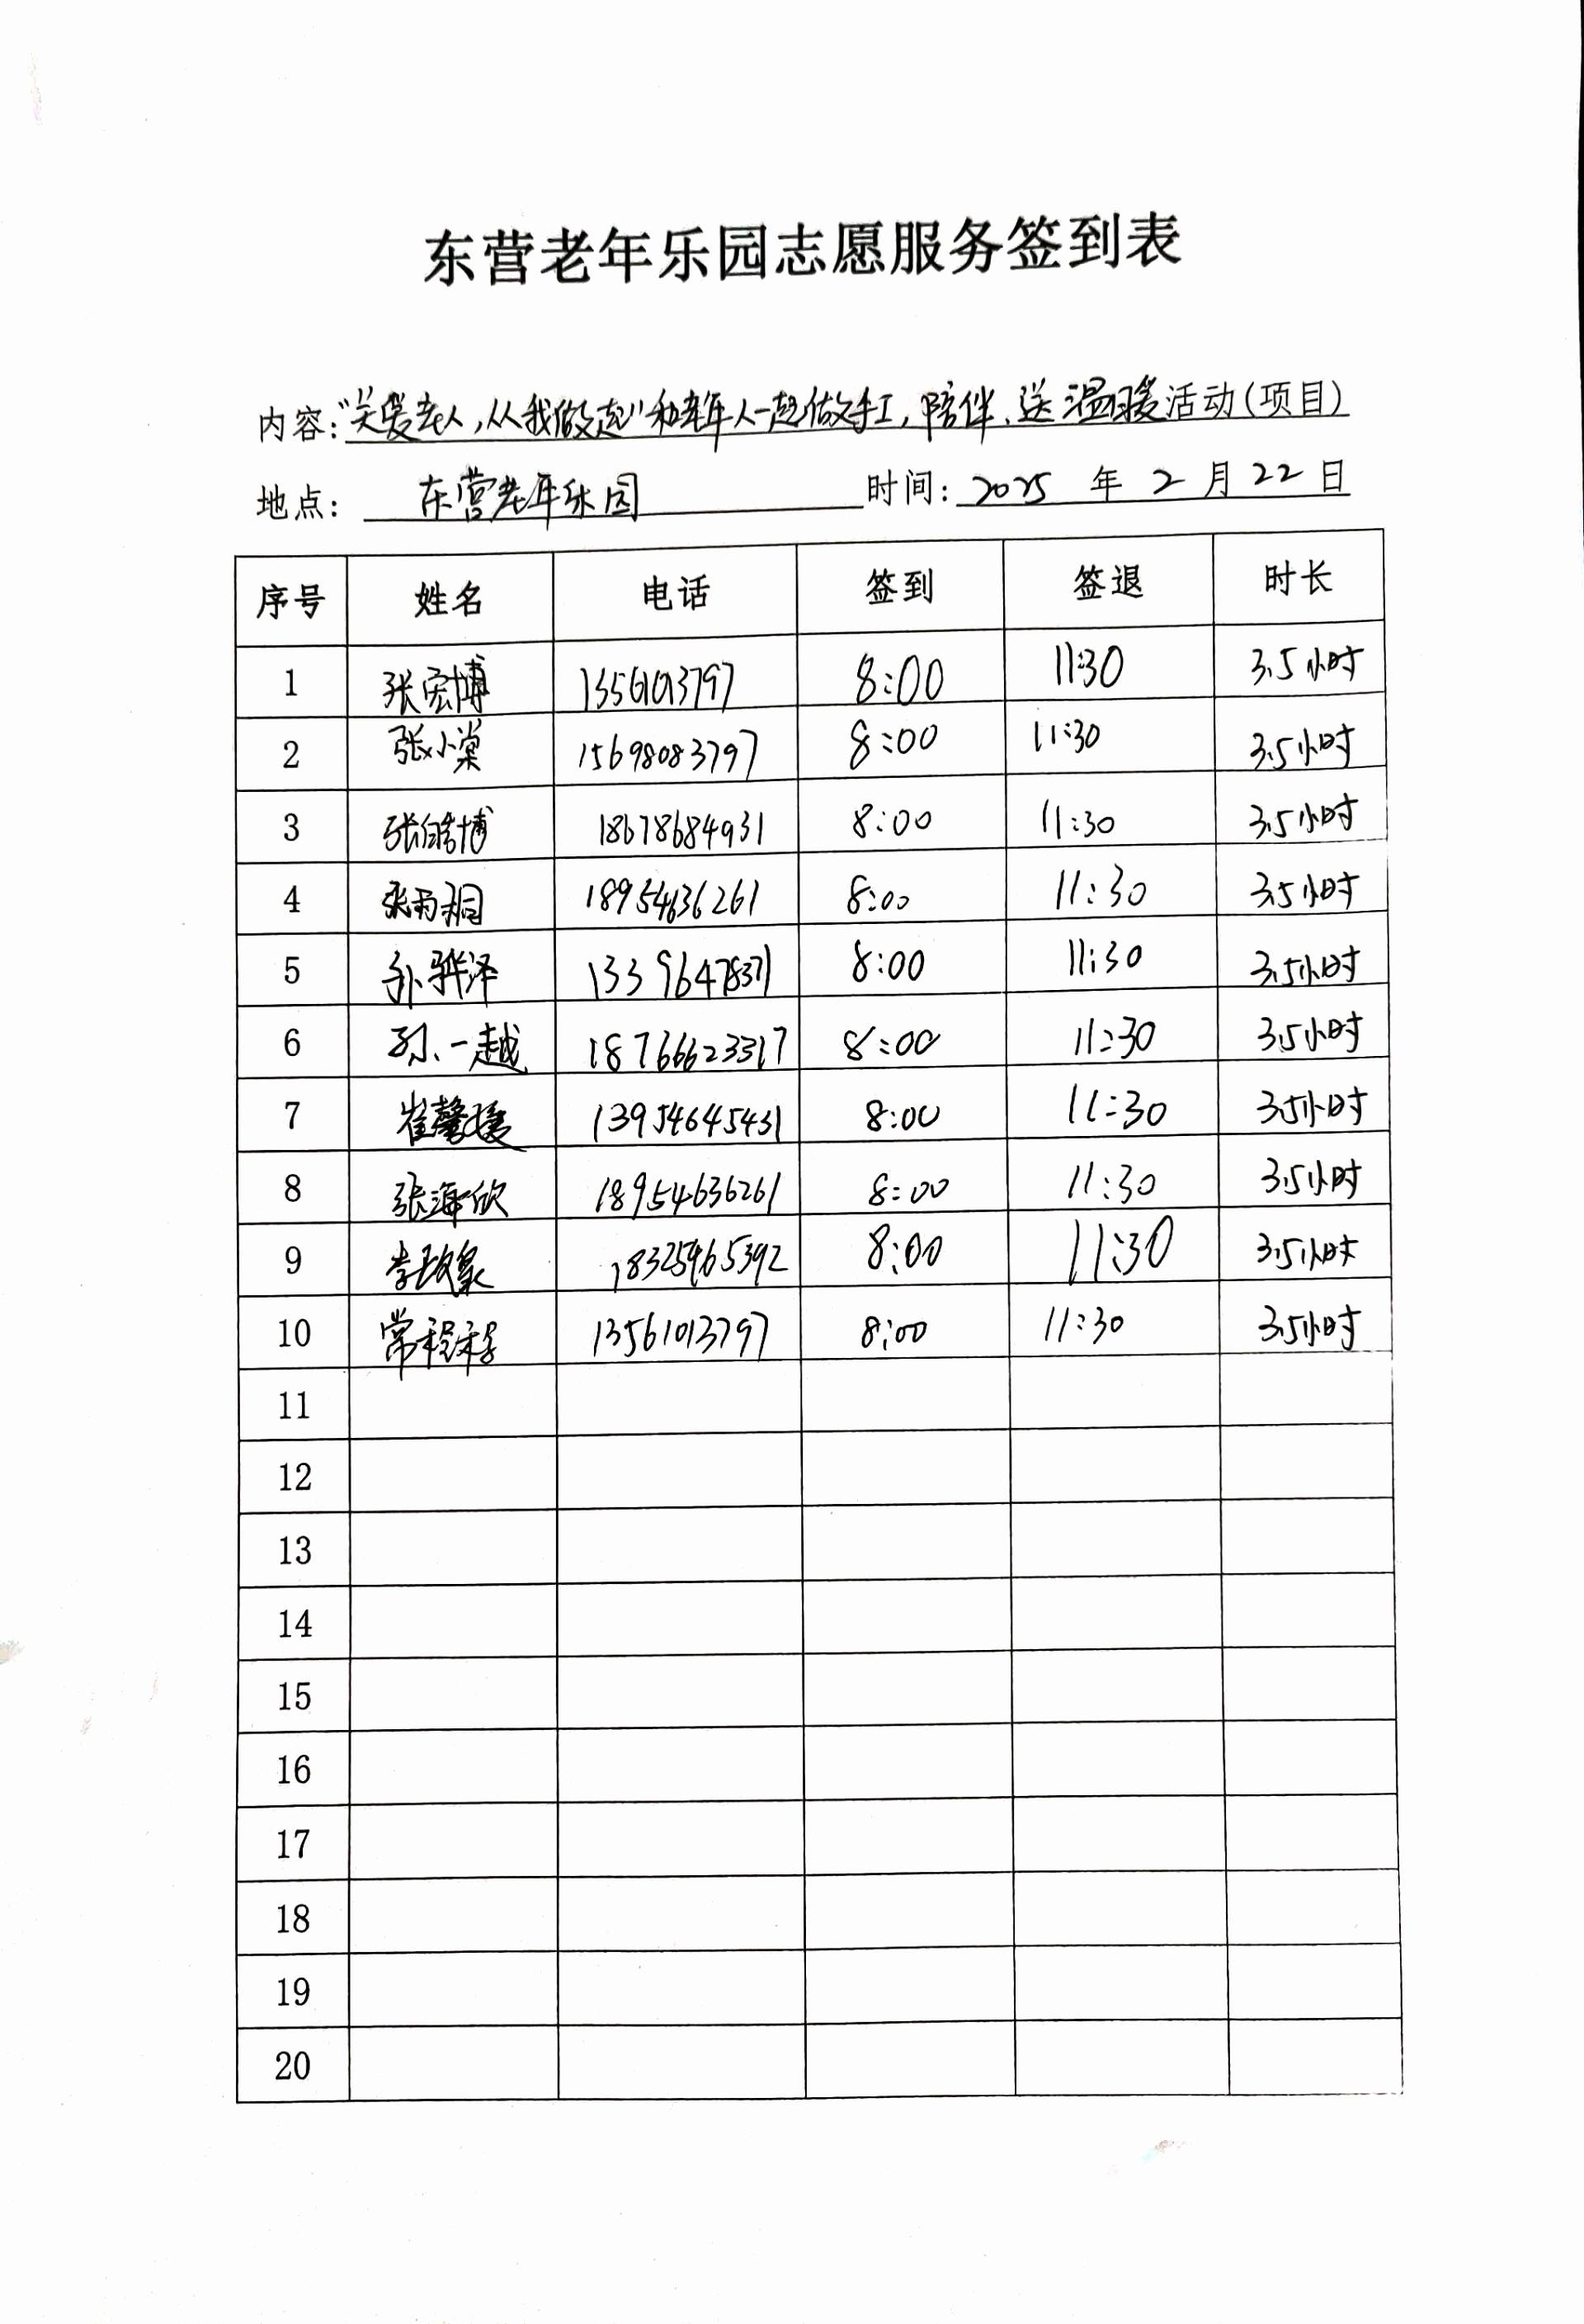 东营老年乐园志愿服务签到表
内容:“关爱老人,从我做起”和老年人一起做手工,陪伴、送温暖活动(项目)
地点: 东营老年乐园 时间: 2025 年 2 月 22 日
序号 姓名 电话 签到 签退 时长
1 张宏博 13561013797 8:00 11:30 3.5小时
2 张小棠 15698083797 8:00 11:30 3.5小时
3 张皓博 18678684931 8:00 11:30 3.5小时
4 张雨桐 18954636261 8:00 11:30 3.5小时
5 孙骅泽 13396478371 8:00 11:30 3.5小时
6 孙一越 18766623317 8:00 11:30 3.5小时
7 崔馨媛 13954645431 8:00 11:30 3.5小时
8 张海欣 18954636261 8:00 11:30 3.5小时
9 李 18325965392 8:00 11:30 3.5小时
10 常程程 13561013797 8:00 11:30 3.5小时
11
12
13
14
15
16
17
18
19
20